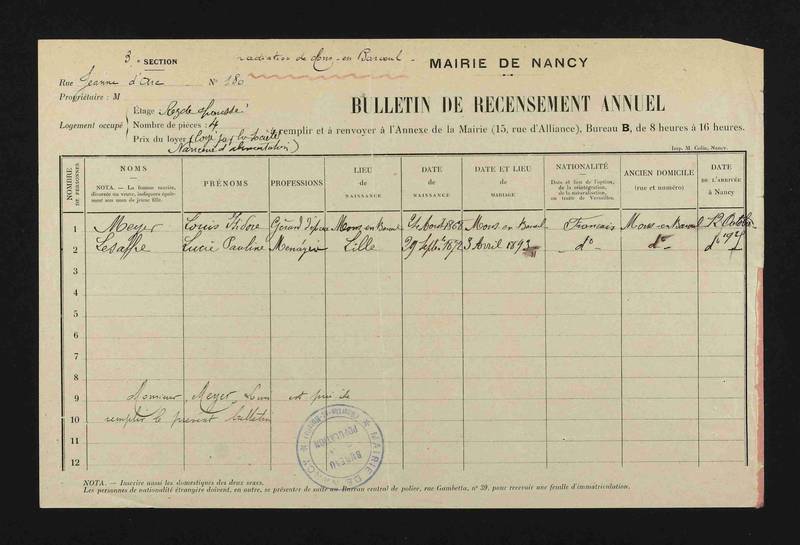 3e SECTION
radiation de Mons-en-Barœul
MAIRIE DE NANCY
Rue Jeanne d'Arc N° 180
Propriétaire : M
BULLETIN DE RECENSEMENT ANNUEL
Logement occupé
Étage Rez de chaussée
Nombre de pièces : 4
Prix du loyer (logé par la Société
Nancéienne d'alimentation)
à remplir et à renvoyer à l'Annexe de la Mairie (15, rue d'Alliance), Bureau B, de 8 heures à 16 heures.
Imp. M. Colin, Nancy.
NOMBRE DE PERSONNES
NOMS
NOTA. — La femme mariée, divorcée ou veuve, indiquera également son nom de jeune fille.
PRÉNOMS
PROFESSIONS
LIEU de NAISSANCE
DATE DE NAISSANCE
DATE ET LIEU de MARIAGE
NATIONALITÉ
Date et lieu de l'option, de la réintégration, de la naturalisation, ou traité de Versailles.
ANCIEN DOMICILE (rue et numéro)
DATE DE L'ARRIVÉE à Nancy
1 Meyer Louis Isidore Gérant d'épicerie Mons en Barœul Août 1868 Mons en Barœul Français Mons-en-Barœul 12 Octobre
2 Lesaffre Lucie Pauline Ménagère Lille 29 Septbre 1872 3 Avril 1893 do do do
3
4
5
6
7
8
9 Monsieur Meyer Louis est prié de
10 remplir le présent bulletin
11
12
MAIRIE DE NANCY
BUREAU
POPULATION
NOTA. — Inscrire aussi les domestiques des deux sexes.
Les personnes de nationalité étrangère doivent, en outre, se présenter de suite au Bureau central de police, rue Gambetta, n° 39, pour recevoir une feuille d'immatriculation.